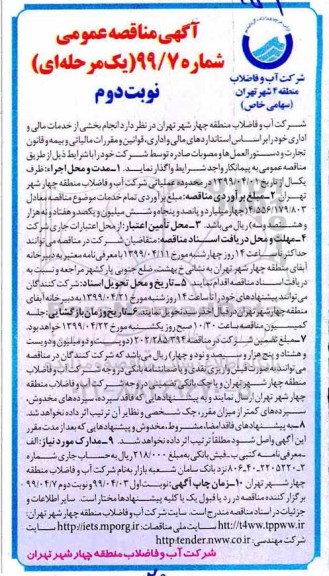 آگهی مناقصه عمومی
شماره ۹۹/۷ (یک مرحله‌ای)
نوبت دوم
شرکت آب و فاضلاب
منطقه ۴ شهر تهران
(سهامی خاص)
شرکت آب و فاضلاب منطقه چهار شهر تهران در نظر دارد انجام بخشی از خدمات مالی و
اداری خود را بر اساس استانداردهای مالی و اداری، قوانین و مقررات مالیاتی و بیمه و قانون
تجارت و دستورالعمل‌ها و مصوبات صادره توسط شرکت خود را با شرایط ذیل از طریق
مناقصه عمومی به پیمانکار واجد شرایط واگذار نمایند. ۱-مدت و محل اجراء: ظرف
یکسال از تاریخ ۱۳۹۹/۰۴/۰۱ در محدوده عملیاتی شرکت آب و فاضلاب منطقه چهار شهر
تهران ۲-مبلغ برآوردی مناقصه: مبلغ برآوردی تمام خدمات موضوع مناقصه معادل
۱۴/۵۵۶/۱۷۹/۸۰۳ (چهارده میلیارد و پانصد و پنجاه و شش میلیون و یکصد و هفتاد و نه هزار
و هشتصد و سه) ریال می باشد. ۳-محل تأمین اعتبار: از محل اعتبارات جاری شرکت
۴-مهلت و محل دریافت اسناد مناقصه: متقاضیان شرکت در مناقصه می توانند
حداکثر تا ساعت ۱۴ روز چهارشنبه مورخ ۱۳۹۹/۰۴/۱۱ با معرفی نامه معتبر به دبیرخانه
آبفای منطقه چهار شهر تهران به نشانی خ بهشت، ضلع جنوبی پارکشهر مراجعه و نسبت به
دریافت اسناد مناقصه اقدام نمایند. ۵-تاریخ و محل تحویل اسناد: شرکت کنندگان
می توانند پیشنهادهای خود را تا ساعت ۱۴ روز شنبه مورخ ۱۳۹۹/۰۴/۲۱ به دبیرخانه آبفای
منطقه چهار شهر تهران در قبال اخذ رسید تحویل نمایند. ۶-تاریخ و زمان بازگشایی: جلسه
کمیسیون مناقصه ساعت ۱۰:۳۰ صبح روز یکشنبه مورخ ۱۳۹۹/۰۴/۲۲ خواهد بود.
۷-مبلغ تضمین شرکت در مناقصه ۲۰۲/۲۸۵/۳۹۴ (دویست و دو میلیون و دویست
و هشتاد و پنج هزار و سیصد و نود و چهار) ریال می باشد که شرکت کنندگان در مناقصه
می توانند به صورت فیش واریزی نقدی و یا ضمانتنامه بانکی در وجه شرکت آب و فاضلاب
منطقه چهار شهر تهران و یا چک بانکی تضمینی در وجه شرکت آب و فاضلاب منطقه
چهار شهر تهران ارسال نمایند و به پیشنهادهایی که فاقد سپرده، سپرده‌های مخدوش،
سپرده‌های کمتر از میزان مقرر، چک شخصی و نظایر آن ترتیب اثر داده نخواهد شد.
۸-به پیشنهادهای فاقد امضا، مشروط، مخدوش و پیشنهادهایی که بعد از مدت مقرر
این آگهی واصل شود مطلقا ترتیب اثر داده نخواهد شد. ۹-مدارک مورد نیاز: الف
-معرفی نامه کتبی ب-فیش بانکی به مبلغ ۲۱۸/۰۰۰ ریال به حساب جاری شماره
۲-۲۲۰۵۲۲۰-۴۰-۸۰۶ نزد بانک سامان شعبه بازار به نام شرکت آب و فاضلاب منطقه
چهار شهر تهران ۱۰-زمان چاپ آگهی: نوبت اول ۹۹/۰۴/۰۳ و نوبت دوم ۹۹/۰۴/۷
برگزار کننده مناقصه در رد یا قبول یک یا کلیه پیشنهادها مختار است. سایر اطلاعات و
جزئیات در اسناد مناقصه مندرج است. سایت شرکت آب و فاضلاب منطقه چهار شهر تهران:
htt://t4ww.tppww.ir سایت ملی مناقصات: http://iets.mporg.ir سایت
شرکت مهندسی: http-tender.nww.co.ir
شرکت آب و فاضلاب منطقه چهار شهر تهران